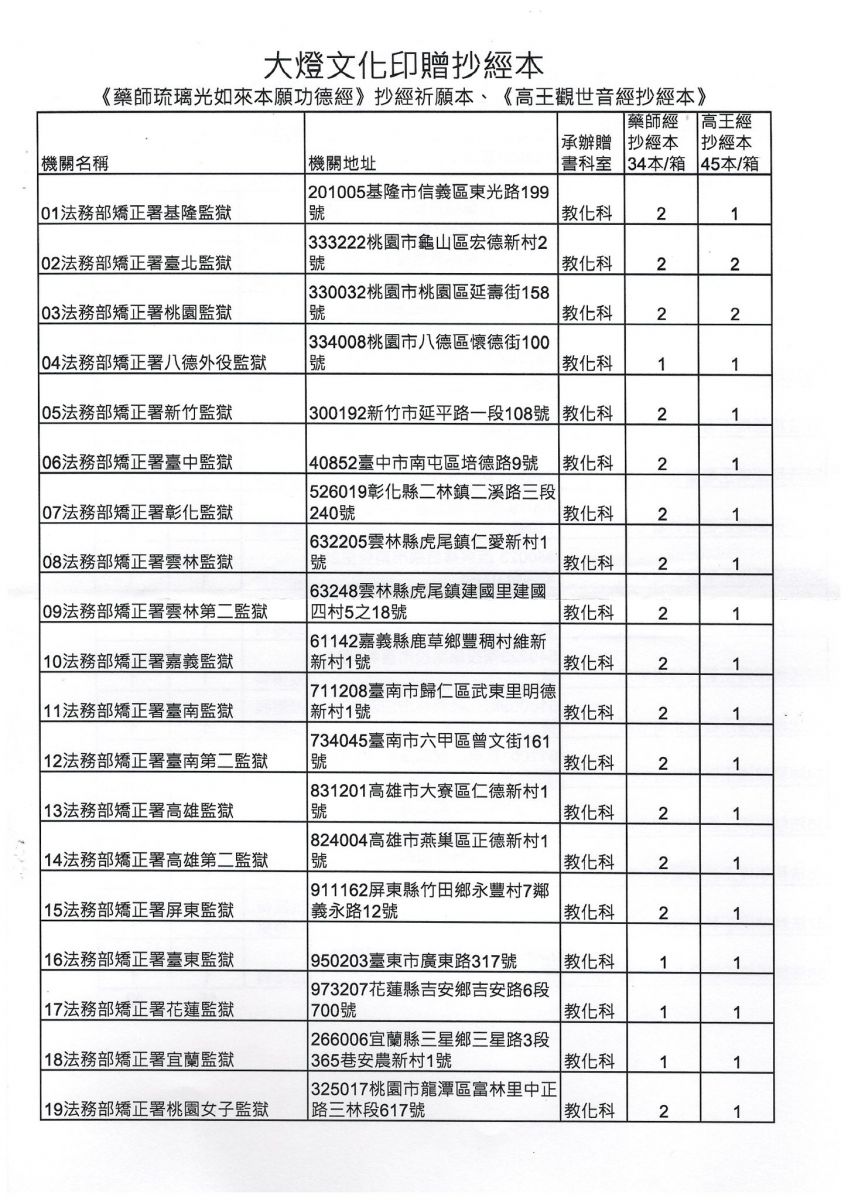 大燈文化印贈抄經本
《藥師琉璃光如來本願功德經》抄經祈願本、《高王觀世音經抄經本》
機關名稱 機關地址 承辦贈書科室 藥師經抄經本34本/箱 高王經抄經本45本/箱
01法務部矯正署基隆監獄 201005基隆市信義區東光路199號 教化科 2 1
02法務部矯正署臺北監獄 333222桃園市龜山區宏德新村2號 教化科 2 2
03法務部矯正署桃園監獄 330032桃園市桃園區延壽街158號 教化科 2 2
04法務部矯正署八德外役監獄 334008桃園市八德區懷德街100號 教化科 1 1
05法務部矯正署新竹監獄 300192新竹市延平路一段108號 教化科 2 1
06法務部矯正署臺中監獄 40852臺中市南屯區培德路9號 教化科 2 1
07法務部矯正署彰化監獄 526019彰化縣二林鎮二溪路三段240號 教化科 2 1
08法務部矯正署雲林監獄 632205雲林縣虎尾鎮仁愛新村1號 教化科 2 1
09法務部矯正署雲林第二監獄 63248雲林縣虎尾鎮建國里建國四村5之18號 教化科 2 1
10法務部矯正署嘉義監獄 61142嘉義縣鹿草鄉豐稠村維新新村1號 教化科 2 1
11法務部矯正署臺南監獄 711208臺南市歸仁區武東里明德新村1號 教化科 2 1
12法務部矯正署臺南第二監獄 734045臺南市六甲區曾文街161號 教化科 2 1
13法務部矯正署高雄監獄 831201高雄市大寮區仁德新村1號 教化科 2 1
14法務部矯正署高雄第二監獄 824004高雄市燕巢區正德新村1號 教化科 2 1
15法務部矯正署屏東監獄 911162屏東縣竹田鄉永豐村7鄰義永路12號 教化科 2 1
16法務部矯正署臺東監獄 950203臺東市廣東路317號 教化科 1 1
17法務部矯正署花蓮監獄 973207花蓮縣吉安鄉吉安路6段700號 教化科 1 1
18法務部矯正署宜蘭監獄 266006宜蘭縣三星鄉三星路3段365巷安農新村1號 教化科 1 1
19法務部矯正署桃園女子監獄 325017桃園市龍潭區富林里中正路三林段617號 教化科 2 1